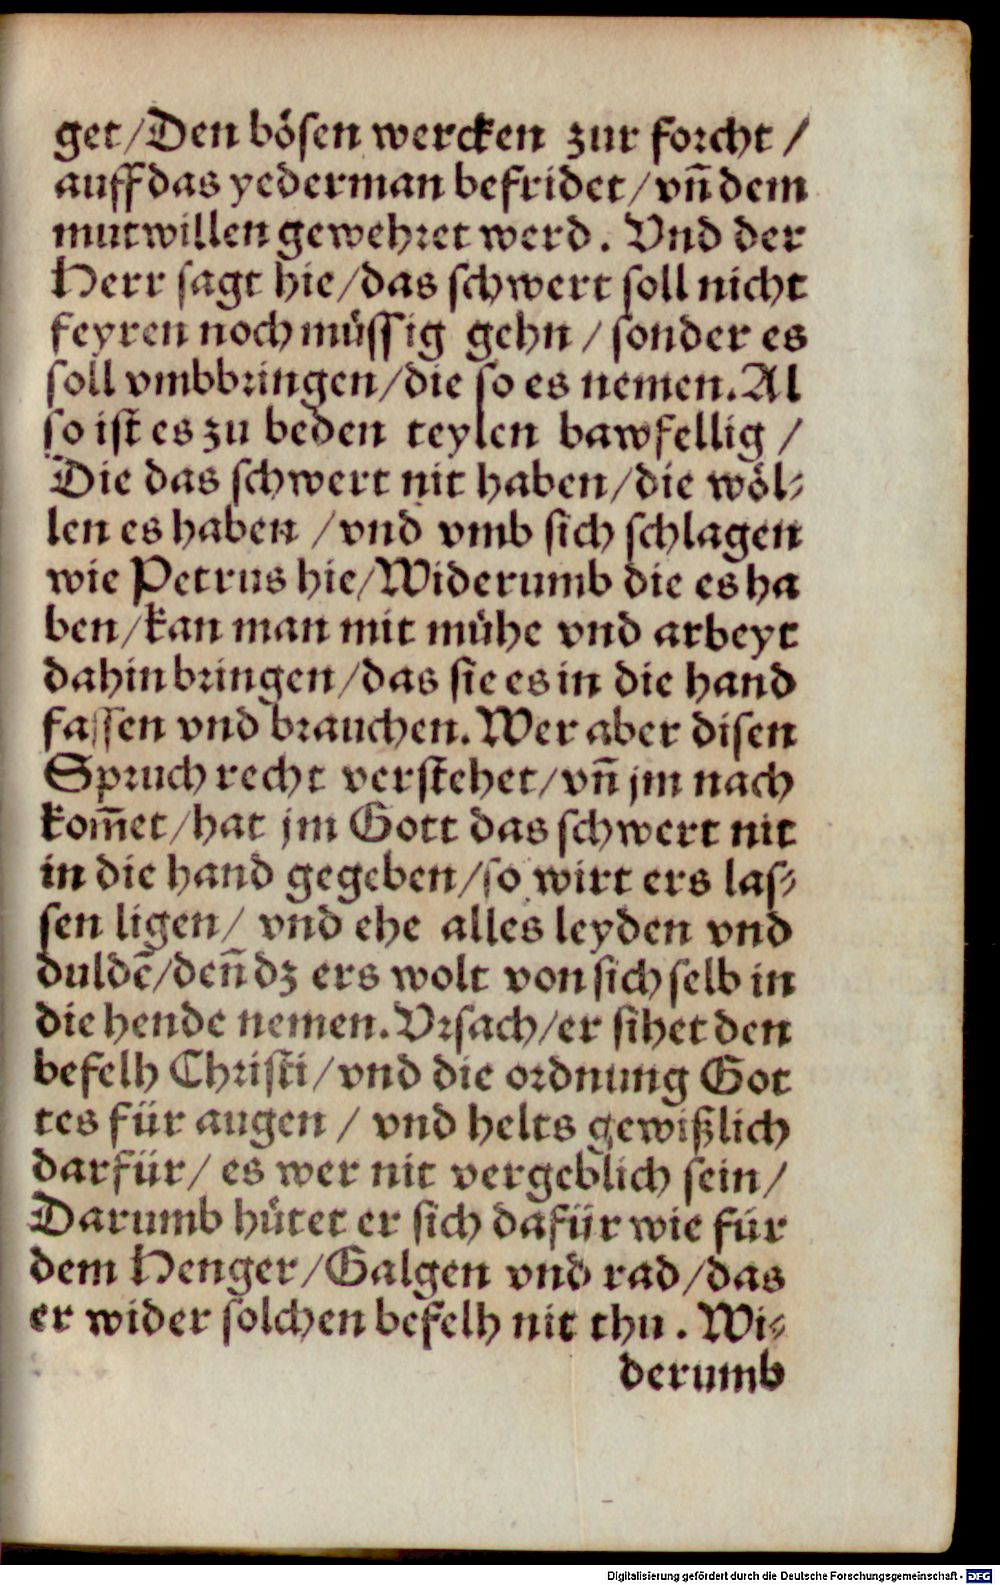 get/Den bösen wercken zur forcht /
auff das yederman befridet/vn̄ dem
mutwillen gewehret werd. Vnd der
Herr sagt hie/das schwert soll nicht
feyren noch müssig gehn / sonder es
soll vmbbringen/die so es nemen. Al
so ist es zu beden teylen bawfellig /
Die das schwert nit haben/die wöl⸗
len es haben /vnd vmb sich schlagen
wie Petrus hie/Widerumb die es ha
ben/kan man mit mühe vnd arbeyt
dahin bringen/das sie es in die hand
fassen vnd brauchen. Wer aber disen
Spruch recht verstehet/vn̄ jm nach
kom̄et/hat jm Gott das schwert nit
in die hand gegeben/so wirt ers las⸗
sen ligen/ vnd ehe alles leyden vnd
duldē/den̄ dz ers wolt von sich selb in
die hende nemen. Vrsach/er sihet den
befelh Christi/vnd die ordnung Got
tes für augen / vnd helts gewißlich
darfür/ es wer nit vergeblich sein/
Darumb hütet er sich dafür wie für
dem Henger/Galgen vnd rad/das
er wider solchen befelh nit thu. Wi⸗
derumb
Digitalisierung gefördert durch die Deutsche Forschungsgemeinschaft - DFG